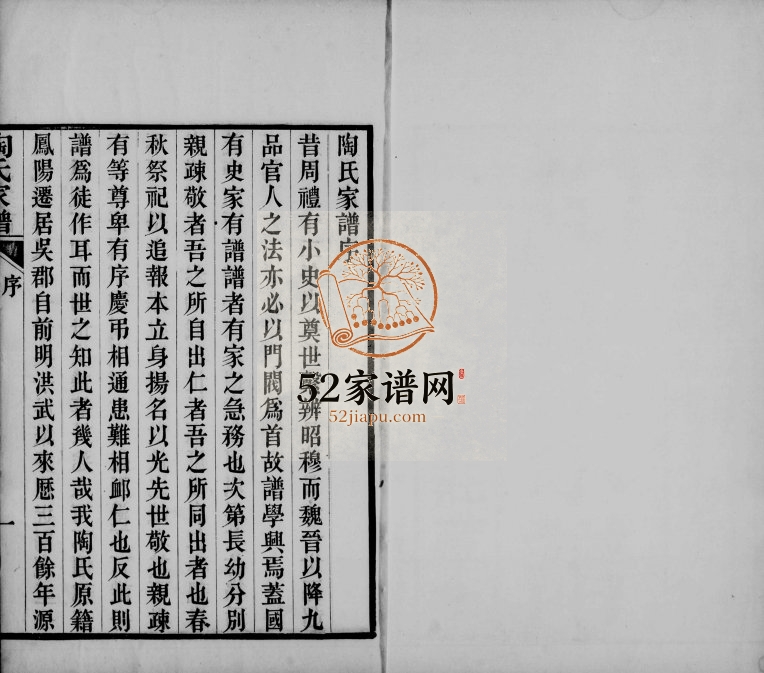 陶氏家譜序
昔周禮有小史以奠世繫辨昭穆而魏晉以降九
品官人之法亦必以門閥爲首故譜學興焉蓋國
有史家有譜譜者有家之急務也次第長幼分別
親疎敬者吾之所自出仁者吾之所同出者也春
秋祭祀以追報本立身揚名以光先世敬也親疎
有等尊卑有序慶弔相通患難相卹仁也反此則
譜爲徒作耳而世之知此者幾人哉我陶氏原籍
鳳陽遷居吳郡自前明洪武以來歷三百餘年源
陶氏家譜
序
一
52家谱网
52jiapu.com